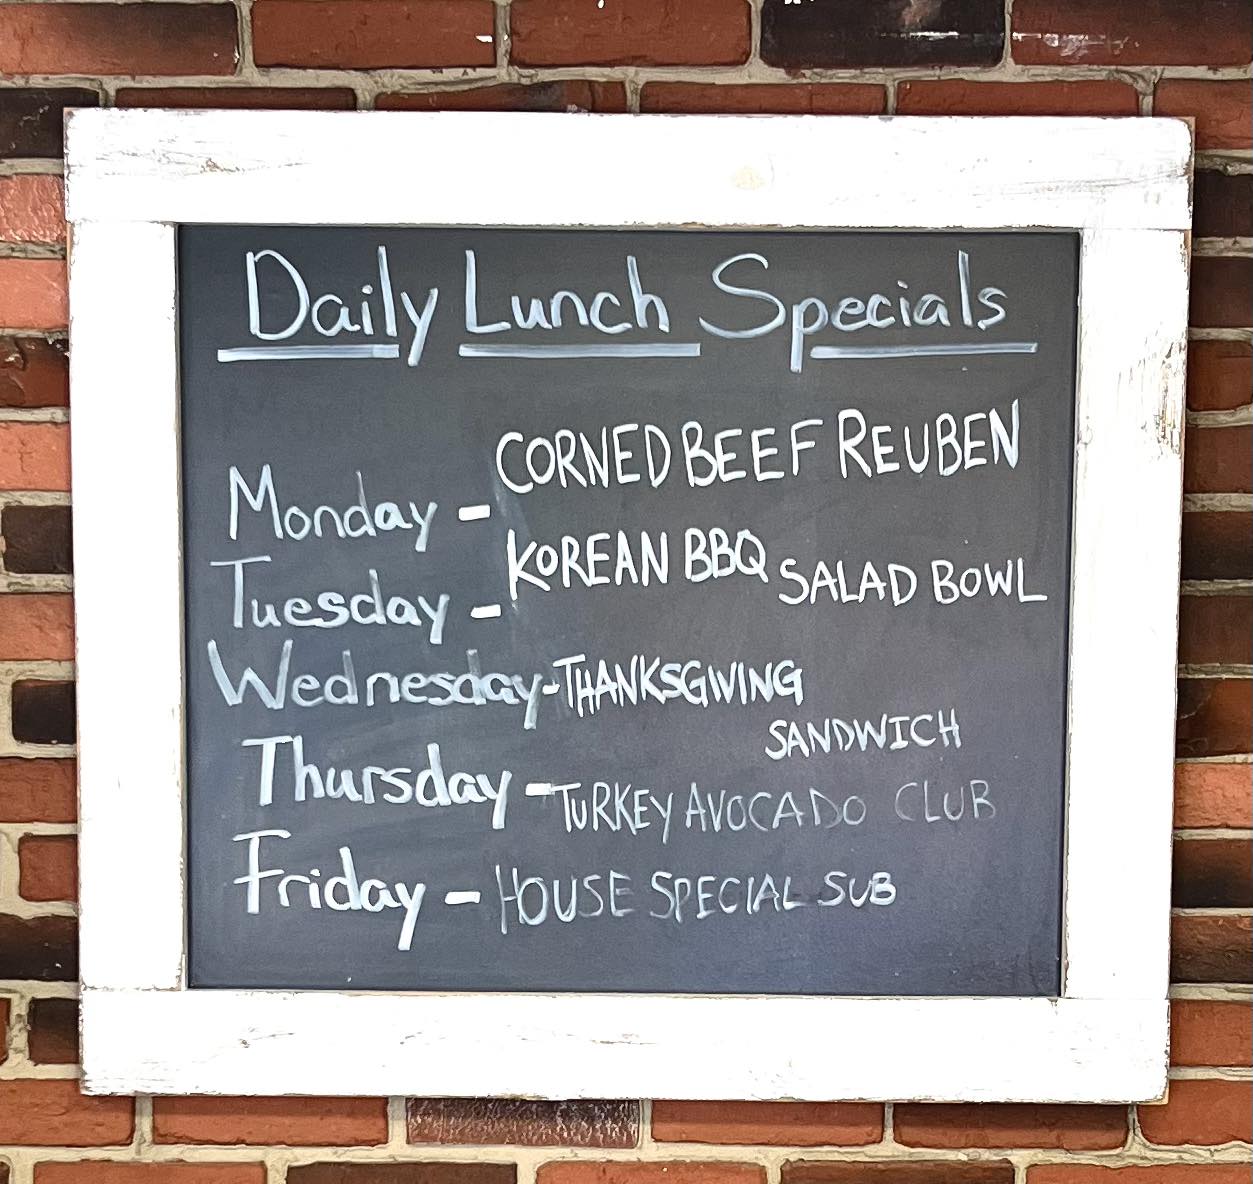 Daily Lunch Specials
Monday - CORNED BEEF REUBEN
Tuesday - KOREAN BBQ SALAD BOWL
Wednesday - THANKSGIVING
SANDWICH
Thursday - TURKEY AVOCADO CLUB
Friday - HOUSE SPECIAL SUB